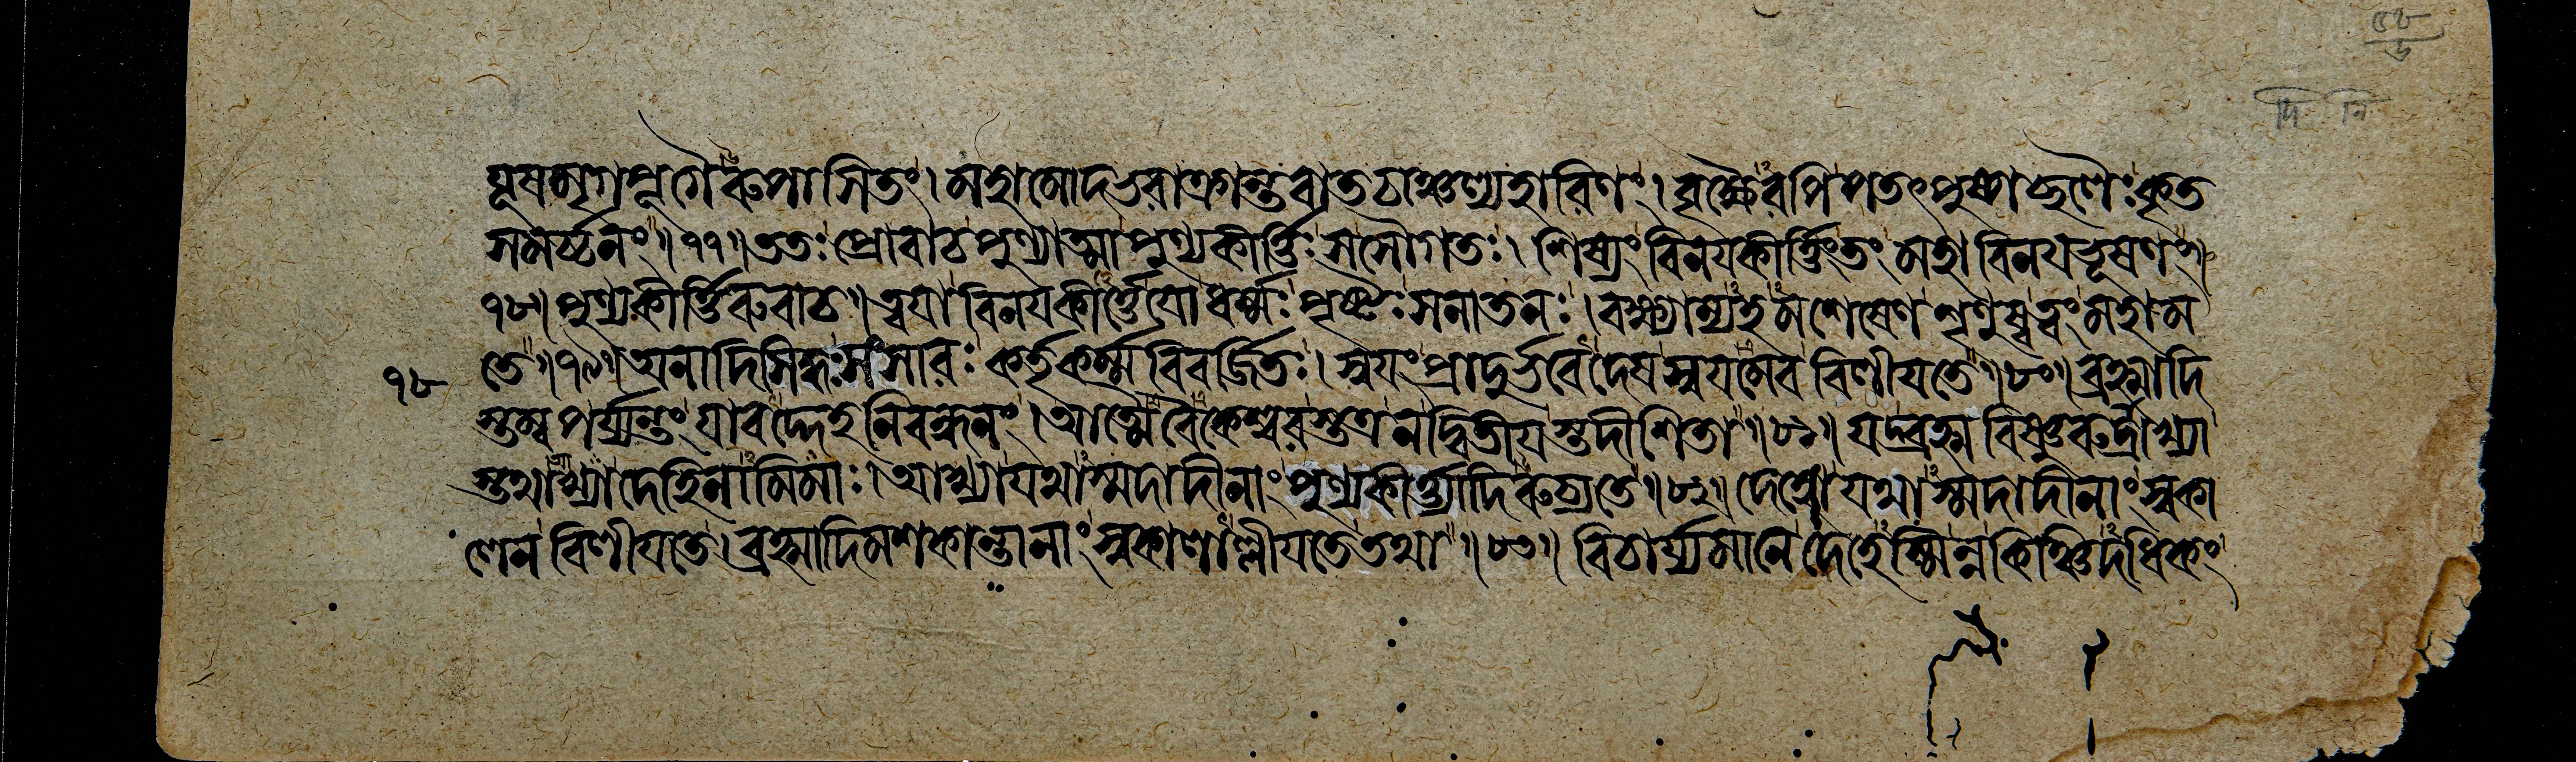 যূষমৃগযূথৈরুপাসিতং। মহামোদভরাক্রান্তবাতচাঞ্চল্যহারিণং। বৃক্ষৈরপি পতৎপুষ্পচ্ছলৈঃ কৃত
সমর্চ্চনং॥৭৭॥ততঃ প্রোবাচ পুণ্যাত্মা পুণ্যকীর্ত্তিঃ সসৌগতঃ। শিষ্যং বিনযকীর্ত্তিং তং মহাবিনযভূষণং॥
৭৮॥পুণ্যকীর্ত্তিরুবাচ॥ত্বযা বিনযকীর্ত্তে যো ধর্ম্মঃ পৃষ্টঃ সনাতনঃ। বক্ষ্যাম্যহমশেষেণ শৃণুষ্ব ত্বং মহাম
তে॥৭৯॥অনাদিসিদ্ধঃ সংসারঃ কর্তৃকর্ম্মবিবর্জ্জিতঃ। স্বযং প্রাদুর্ভবেদেষ স্বযমেব বিলীযতে॥৮০॥ব্রহ্মাদি
৭৮
স্তম্বপর্য্যন্তং যাবদ্দেহনিবন্ধনং। আত্মৈবৈকেশ্বরস্তত্র ন দ্বিতীযস্তদীশিতা॥৮১॥ যদ্ব্রহ্মবিষ্ণুরুদ্রাখ্যা
স্তথাখ্যা দেহিনামিমাঃ। আখ্যা যথাস্মদাদীনাং পুণ্যকীর্ত্ত্যাদিরুচ্যতে॥৮২॥ দেহো যথাস্মদাদীনাং স্বকা
লেন বিলীযতে। ব্রহ্মাদিমশকান্তানাং স্বকালাল্লীযতে তথা॥৮৩॥ বিচার্য্যমানে দেহেস্মিন্ন কিঞ্চিদধিকং